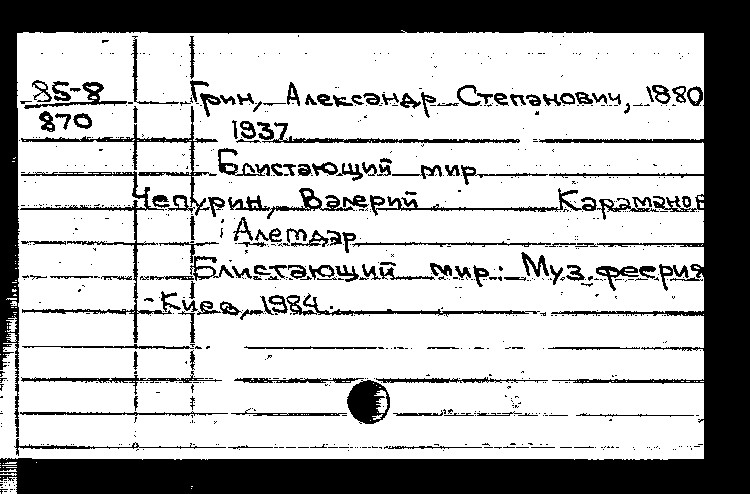 85-8
870
Грин, Александр Степанович, 1880
1937.
Блистающий мир.
Чепурин, Валерий Караманов
Алемдар
Блистающий мир: Муз. феерия
- Киев, 1984.